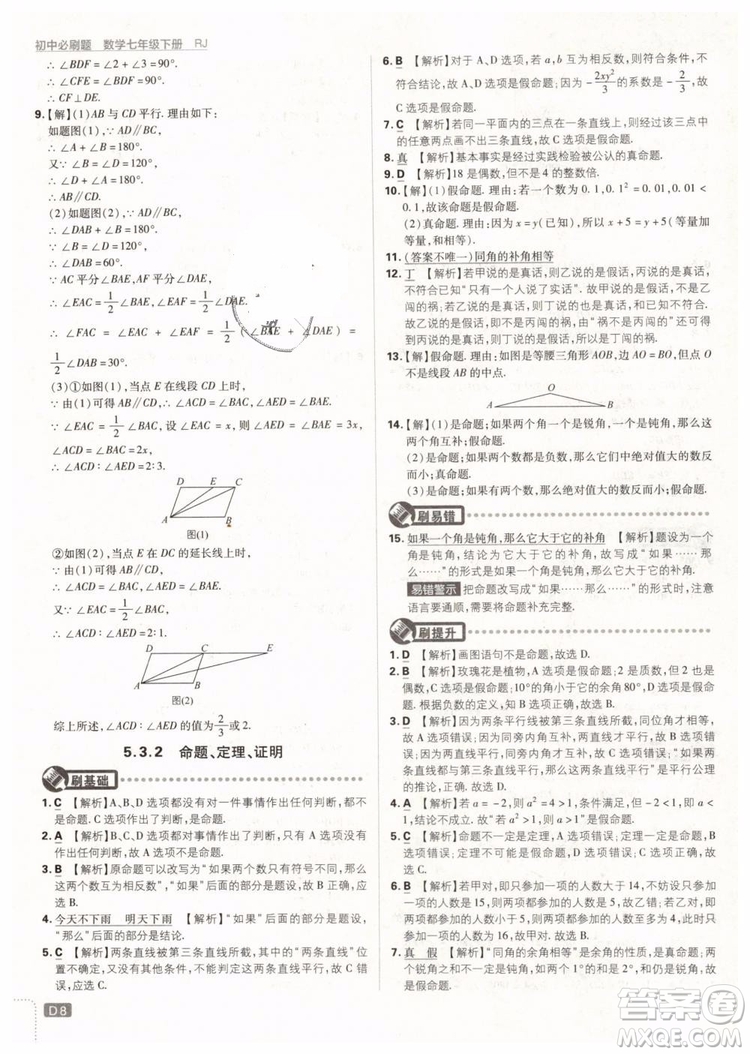 初中必刷题 数学七年级下册 RJ
∴ ∠BDF = ∠2 + ∠3 = 90°.
∴ ∠CFE = ∠BDF = 90°.
∴ CF⊥DE.
9.【解】(1)AB 与 CD 平行. 理由如下:
如题图(1),∵ AD∥BC,
∴ ∠A + ∠B = 180°.
又∵ ∠B = ∠D = 120°,
∴ ∠D + ∠A = 180°.
∴ AB∥CD.
(2)如题图(2),∵ AD∥BC,
∴ ∠B + ∠DAB = 180°.
∵ ∠B = 120°,
∴ ∠DAB = 60°.
∵ AC 平分∠BAE,AF 平分∠DAE,
∴ ∠EAC = 1/2 ∠BAE, ∠EAF = 1/2 ∠DAE.
∴ ∠FAC = ∠EAC + ∠EAF = 1/2 (∠BAE + ∠DAE) =
1/2 ∠DAB = 30°.
(3)①如图(1),当点 E 在线段 CD 上时,
∵ 由(1)可得 AB∥CD,
∴ ∠ACD = ∠BAC, ∠AED = ∠BAE.
又∵ ∠EAC = 1/2 ∠BAC,设∠EAC = x,则∠BAE = 3x,
∠BAC = 2x,
∴ ∠ACD : ∠AED = 2:3.
D E C
A B
图(1)
②如图(2),当点 E 在 DC 的延长线上时,
∵ 由(1)可得 AB∥CD,
∴ ∠ACD = ∠BAC, ∠AED = ∠BAE.
又∵ ∠EAC = 1/2 ∠BAC,
∴ ∠BAC = 2∠EAC.
∴ ∠ACD : ∠AED = 3:1.
D C E
A B
图(2)
综上所述,∠ACD : ∠AED 的值为 2/3 或 3.
5.3.2 命题、定理、证明
刷基础
1. C 【解析】A、B、D 选项都没有对一件事情作出任何判断,都
不是命题;C 选项对一件事情作出了判断,故选 C.
2. A 【解析】B、C、D 选项都没有对一件事情作出任何判断,都
不是命题,故选 A.
3. B 【解析】原命题可以改写为“如果两个数只有符号不同,那
么这两个数互为相反数”,“如果”后面的部分是题设,B 正确,应
选 B.
4. 今天不下雨 明天下雨 【解析】“如果”后面的部分是题设,
“那么”后面的部分是结论.
5. C 【解析】两条直线被第三条直线所截,同位角相等,命题的
结论不一定正确,因为两条直线平行,才有同位角相等,所以条
件“两条直线”需要改为“两条平行线”. 故选 C.
D8
6. B 【解析】对于 A 选项,若 a = 0,b = 0,则 ab = 0,故 A 选项
不符合结论,故是假命题;因为 -2xy²/3 的系数是 -2/3,故
C 选项是假命题.
7. C 【解析】若同一平面内的三点在一条直线上,则过三点中
的任意两点画不出三条直线,故 C 选项是假命题.
8. 真 【解析】基本事实是经过实践检验被公认的真命题.
9. D 【解析】18 是偶数,但不是 4 的整数倍.
10.【解】(1)假命题. 理由:若一个数为 0.1,0.1² = 0.01,0.01 <
0.1,故该命题为假命题.
(2)真命题. 因为 x = y(已知),所以 x + 5 = y + 5(等式的性
质).
11. (答案不唯一)同角的补角相等
12. 丁 【解析】若甲说的是真话,则乙说的是假话,丙说的是真话,
不符合已知“只有一个人说了实话”. 故甲说的是假话,不是乙
闯的祸;若乙说的是真话,则丁说的也是真话,不符合已知条件,
故乙说的是假话,不是丙闯的祸,因而由“祸不是丙闯的”得到
丙说的是真话,因此丁说的是假话,即丁闯了祸.
13.【解】假命题. 理由:如图是等腰三角形 AOB,以 O 为顶点,但点
O 不是线段 AB 的中点.
O
A B
14.【解】(1)是命题;如果两个角一个是锐角,一个是钝角,那么这
两个角互补;假命题.
(2)是命题;如果两个数都是负数,那么绝对值大的数反
而小;真命题.
(3)是命题;如果两个数比较大小,那么绝对值大的数反
而小;假命题.
刷易错
15. 如果一个角是钝角,那么它大于它的补角 【解析】题设为一
个角是钝角,结论为它大于它的补角,故写成“如果……那
么……”的形式为如果一个角是钝角,那么它大于它的补角.
易错警示 把命题改写成“如果……那么……”的形式时,注意
语言要通顺,需要时将命题补充完整.
刷提升
1. D 【解析】画图语句不是命题,故选 D.
2. D 【解析】玫瑰花是植物,A 选项是假命题;2 是质数,但是偶
数,B 选项是假命题;10° 的角不是钝角,C 选项是假命题;D 选
项,根据余角的定义,知 D 选项是真命题. 故选 D.
3. D 【解析】因为两条平行线被第三条直线所截,同位角相等,
A 选项错误;因为两条平行线被第三条直线所截,同旁内角互
补,B 选项错误;同旁内角互补,两直线才平行,C 选项错误;如
果两条直线都与第三条直线平行,那么这两条直线平行是平行公理的
推论,D 选项正确. 故选 D.
4. A 【解析】若 a = -2,则 a² = 4 > 1,条件满足,但 -2 < 1,则
结论不成立. 故“若 a² > 1,则 a > 1”是假命题. 故选 A.
5. C 【解析】命题不一定是定理,A 选项错误;命题不一定正确,
B 选项错误;定理都是真命题,D 选项错误;C 选项正确,应
选 C.
6. B 【解析】若甲对,即只参加一项的人数大于 14,则两项都参
加的人数小于 6,故乙对;若乙对,即两项都参加的人数小于 5,
则两项都参加的人数至多为 4,此时只参加一项的人数为 16,
故甲对. 故选 B.
7. 真 假 【解析】“等角的余角相等”是余角的性质,是真命题;两
个锐角之和不一定是钝角,“两个锐角之和一定是钝角”是假
命题.
答案圈